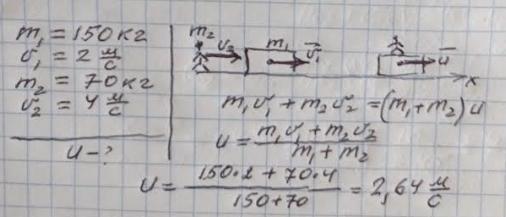 m₁ = 150 кг
v₁ = 2 м/с
m₂ = 70 кг
v₂ = 4 м/с
u - ?
m₂ v₂ m₁ v₁ u
x
m₁v₁ + m₂v₂ = (m₁ + m₂)u
u = (m₁v₁ + m₂v₂)/(m₁ + m₂)
u = (150·2 + 70·4)/(150+70) = 2,64 м/с